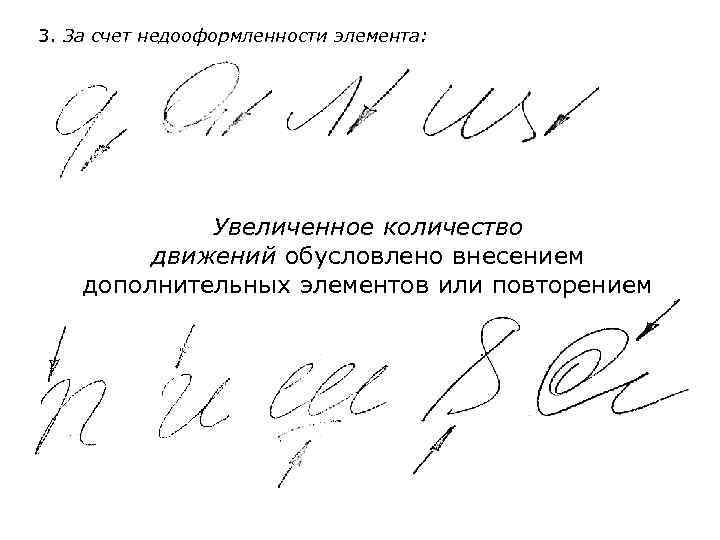 3. За счет недооформленности элемента:
Увеличенное количество
движений обусловлено внесением
дополнительных элементов или повторением